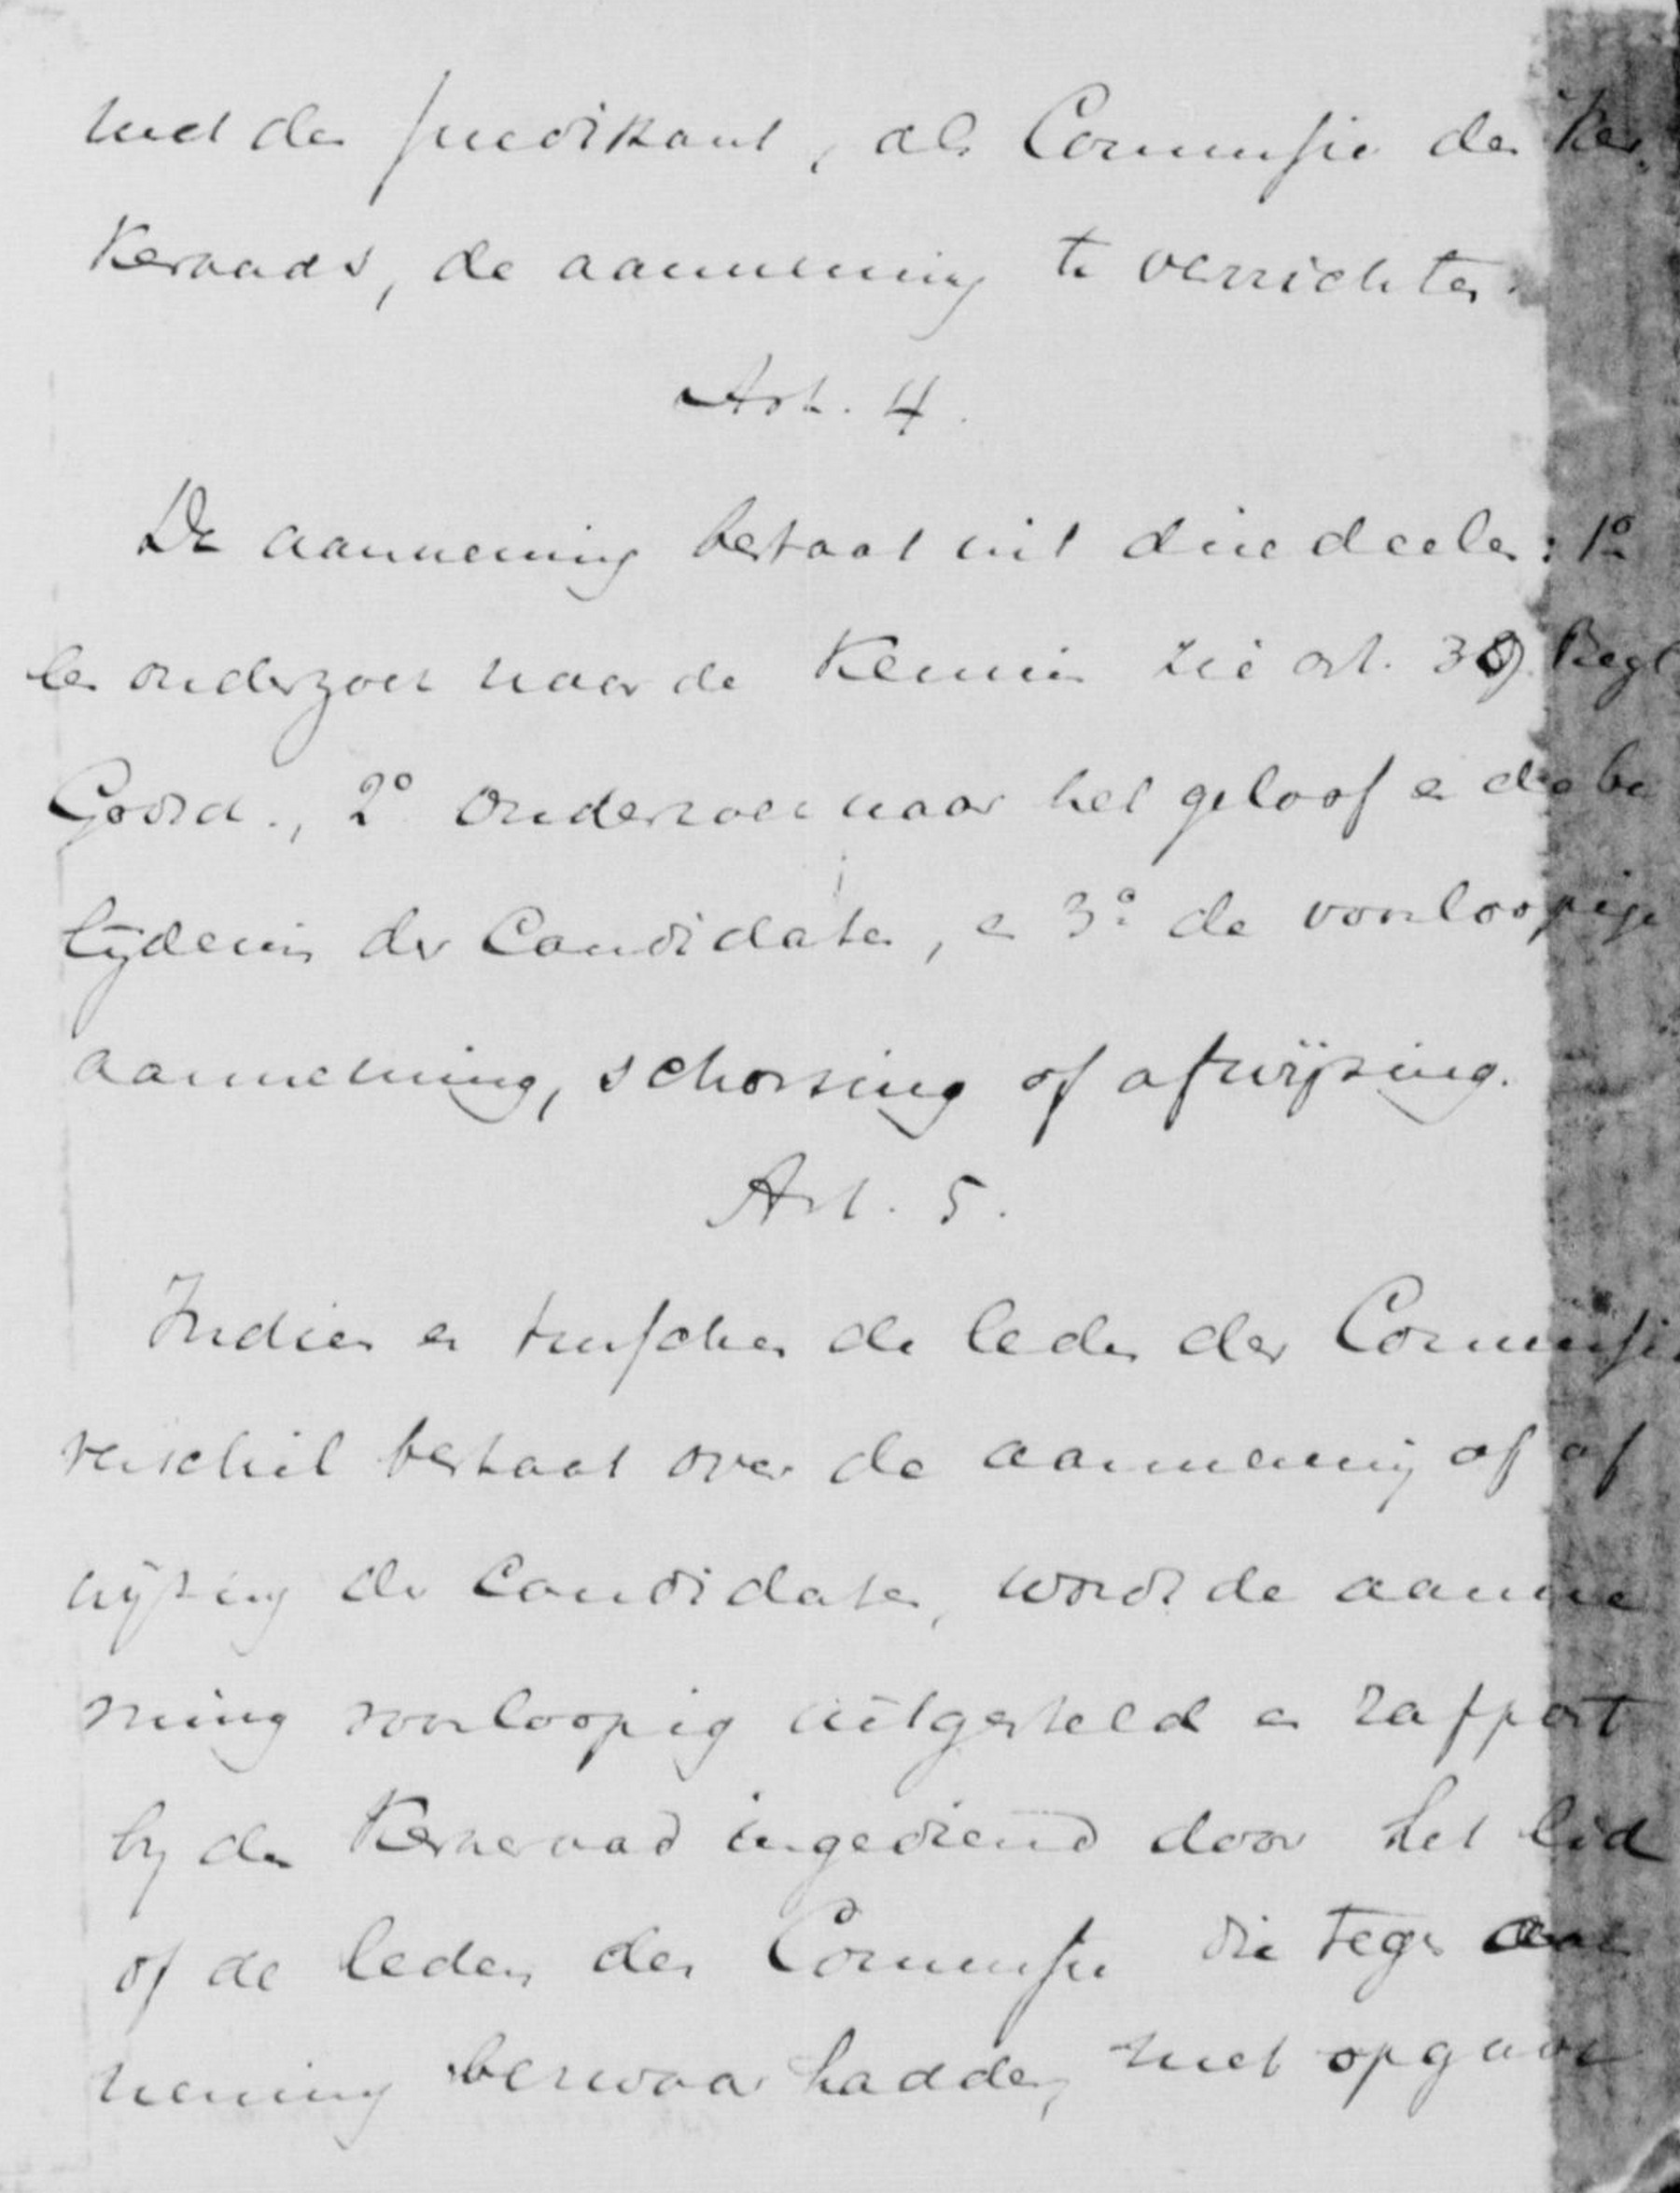 met den predikant, als Commissie des Ker-
keraads, de aanneming te verrichten.
Art. 4.
De aanneming bestaat uit drie deelen: 1º
een onderzoek naar de kennis zie art. 38 Regl
Godsd., 2º onderzoek naar het geloof en de be
lijdenis der Candidaten, en 3º de voorloopige
aanneming, schorsing of afwijzing.
Art. 5.
Indien er tusschen de leden der Commissie
verschil bestaat over de aanneming of af
wijzing der Candidaten, wordt de aanne
ming voorloopig uitgesteld en rapport
bij den Kerkeraad ingediend door het lid
of de leden der Commissie die tegen aan
neming bezwaar hadden, met opgave